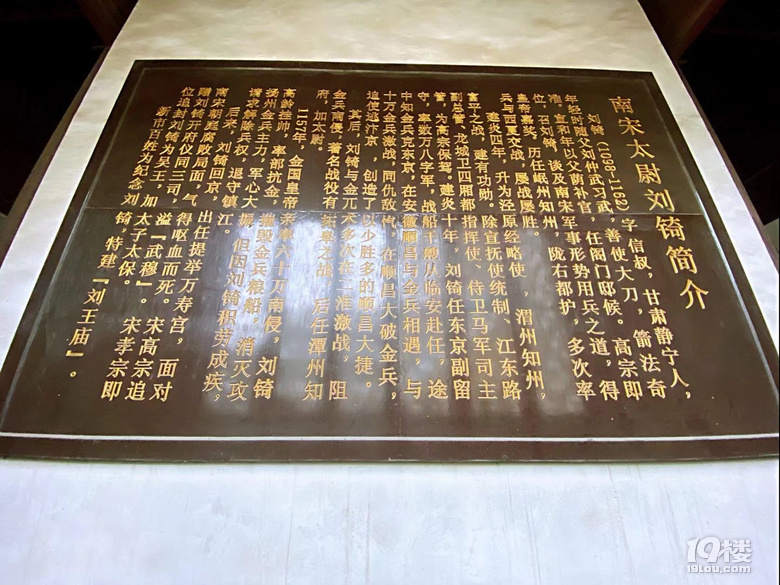 南宋太尉刘锜简介
刘锜(1098-1162)，字信叔，甘肃静宁人，
年轻时随父刘仲武习武，善使大刀，箭法奇
准。宣和年以父荫补官，任阁门邸候。高宗即
位，召刘锜，谈及南宋军事形势用兵之道，得
皇帝嘉奖，历任岷州知州，陇右都护，多次率
兵与西夏交战，屡战屡胜。
建炎四年，升为泾原经略使，渭州知州，
富平之战，建有功勋。除宣抚使统制、江东路
副总管、龙城卫四厢都指挥使、侍卫马军司主
管，为高宗保驾，建炎十年，刘锜任东京副留
守，率数万八字军，战船千艘从临安赴任，途
中知金兵克东京，在安徽顺昌与金兵相遇，与
十万金兵激战，同仇敌忾，在顺昌大破金兵，
追使逃汴京，创造了以少胜多的顺昌大捷。
其后，刘锜与金兀术多次在二淮激战，阻
金兵南侵，著名战役有拓皋之战，后任潭州知
府，加太尉
1157年，金国皇帝亲率六十万南侵，刘锜
高龄挂帅，率部抗金，凿毁金兵粮船，消灭攻
扬州金兵主力，军心大振，但因刘锜积劳成疾，
请求解除兵权，退守镇江。
后来，刘锜回京，出任提举万寿宫，面对
南宋朝廷腐败局面，气得呕血而死。宋高宗追
赠刘锜开府仪同三司，谥『武穆』。宋孝宗即
位追封刘锜为吴王，加太子太保。
新市百姓为纪念刘锜，特建『刘王庙』。
19楼
19lou.com